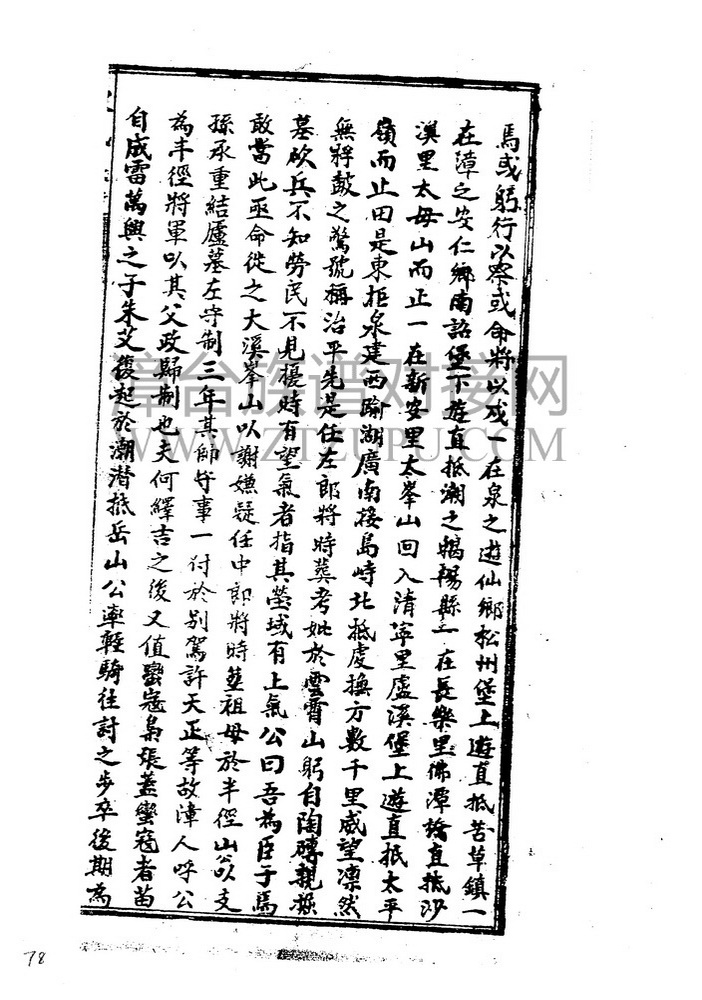 焉或躬行以察或命將以戍一在泉之遊仙鄉松州堡上遊直抵苦草鎮一
在漳之安仁鄉南詔堡下遊直抵潮之揭陽縣一在長樂里佛潭橋直抵沙
溪里太母山而止一在新安里太峯山回入清寧里盧溪堡上遊直抵太平
嶺而止由是東拒泉建西踰湖廣南接島嶼北抵虔撫方數千里威望凛然
無桴鼓之驚號稱治平先是任左郎將時葬考妣於雲霄山躬自陶磚親操
墓砍兵不知勞民不見擾時有望氣者指其塋域有上氣公曰吾為臣子焉
敢當此亟命徙之大溪峯山以謝嫌疑任中郎將時塟祖母於半徑山公以支
孫承重結廬墓左守制三年其師守事一付於別駕許天正等故漳人呼公
為半徑將軍以其父政歸制也夫何繹吉之後又值蠻寇梟張蓋蠻寇者苗
自成雷萬興之子朱艾復起於潮潛抵岳山公率輕騎往討之步卒後期為
漳台族谱对接网
WWW.ZTZUPU.COM
78